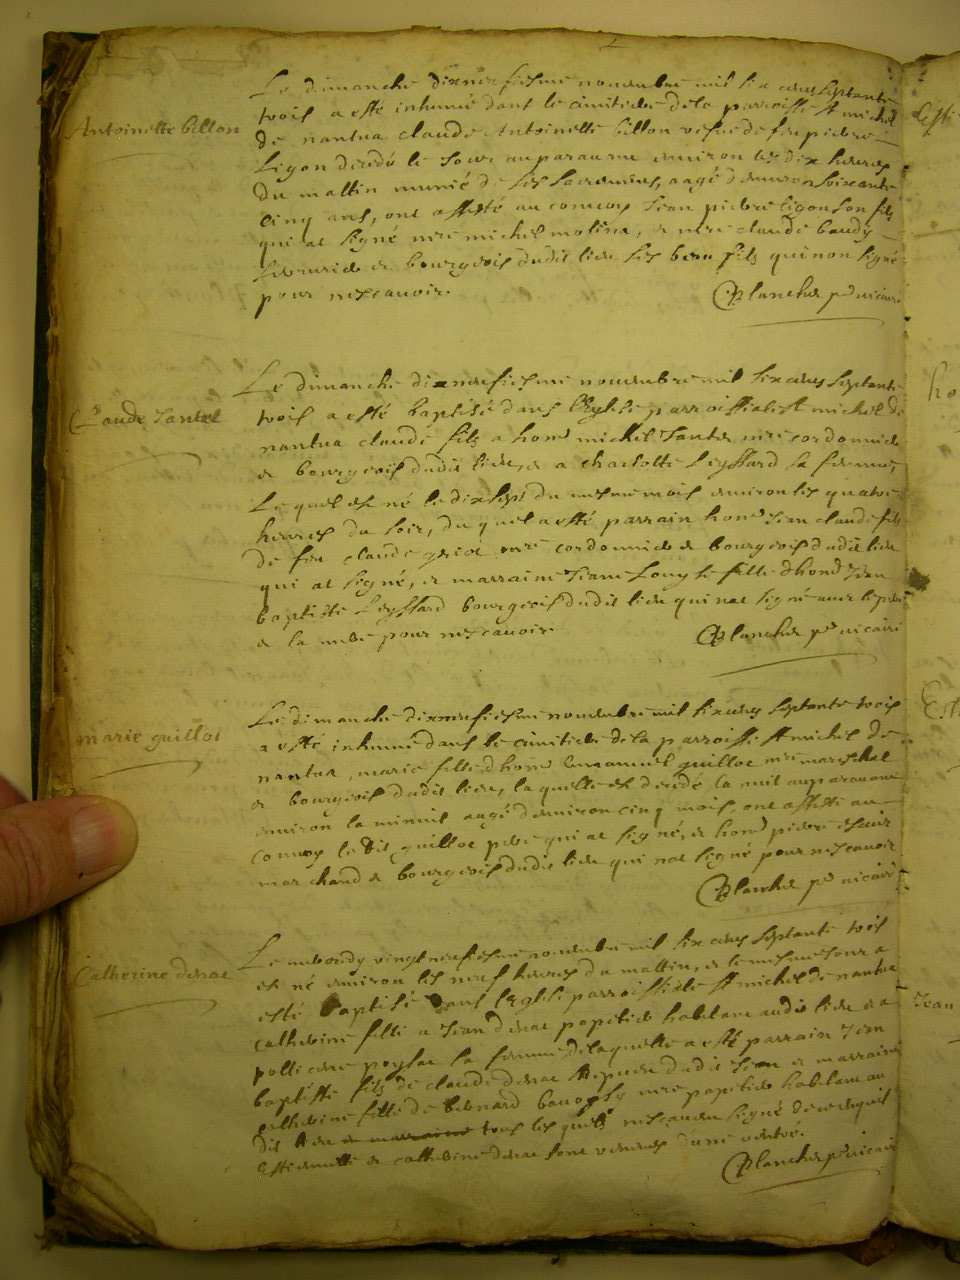 Antoinette billon
Le dimanche dixneufiesme novembre mil six cens septante
trois a esté inhumé dans le cimitiere de la parroisse st michel
de nantua claude Antoinette billon vefve de feu pierre
Ligon decedé le jour auparavant environ les dix heures
du mattin munié de ses sacremens, aagé d'environ soixante
cinq ans, ont assisté au convoy Jean pierre ligon son fils
qui at signé mre michel molin, et mre claude baudy
et bourgeois dudit lieu ses beau fils qui non signé
pour ne scavoir.
Blanchet pbr vicaire
Claude Jantet
Le dimanche dixneufiesme novembre mil six cens septante
trois a esté baptisé dans l'Eglise parroissiale st michel de
nantua claude fils a hond michel Jantet mre cordonnier
et bourgeois dudit lieu, et a charlotte Leyssard sa femme,
Lequel est né le dixsept du mesme mois environ les quatre
heures du soir, duquel a esté parrain hond Jean claude fils
de feu claude mre cordonnier et bourgeois dudit lieu
qui at signé, et marraine Jeanne Louyse fille d'hond Jean
baptiste Leyssard bourgeois dudit lieu qui nat signé avec le pere
et la mere pour ne scavoir.
Blanchet pbr vicaire
marie guillot
Le dimanche dixneufiesme novembre mil six cens septante trois
a esté inhumé dans le cimitiere de la parroisse st michel de
nantua, marie fille d'hond Emmanuel guillot mre mareschal
et bourgeois dudit lieu, laquelle est decedé la nuit auparavant
environ la minuit aagé d'environ cinq mois, ont assisté au
convoy ledit guillot pere qui at signé, et hond pierre
marchand et bourgeois dudit lieu qui nat signé pour ne scavoir
Blanchet pbr vicaire
Catherine derac
Le mecredy vingt neufiesme novembre mil six cens septante trois
est né environ les neuf heures du mattin, et le mesme jour a
esté baptisé dans l'Eglise parroissialle st michel de nantua
catherine fille a Jean derac papetier habitant audit lieu et a
sa femme de laquelle a esté parrain Jean
baptiste fils de claude derac nepveu dudit Jean et marraine
catherine fille de bernard mre papetier habitant au
dit lieu et marraine tous lesquels nescavent signé
Estiennette et catherine derac sont venues d'une ventré.
Blanchet pbr vicaire
Jean